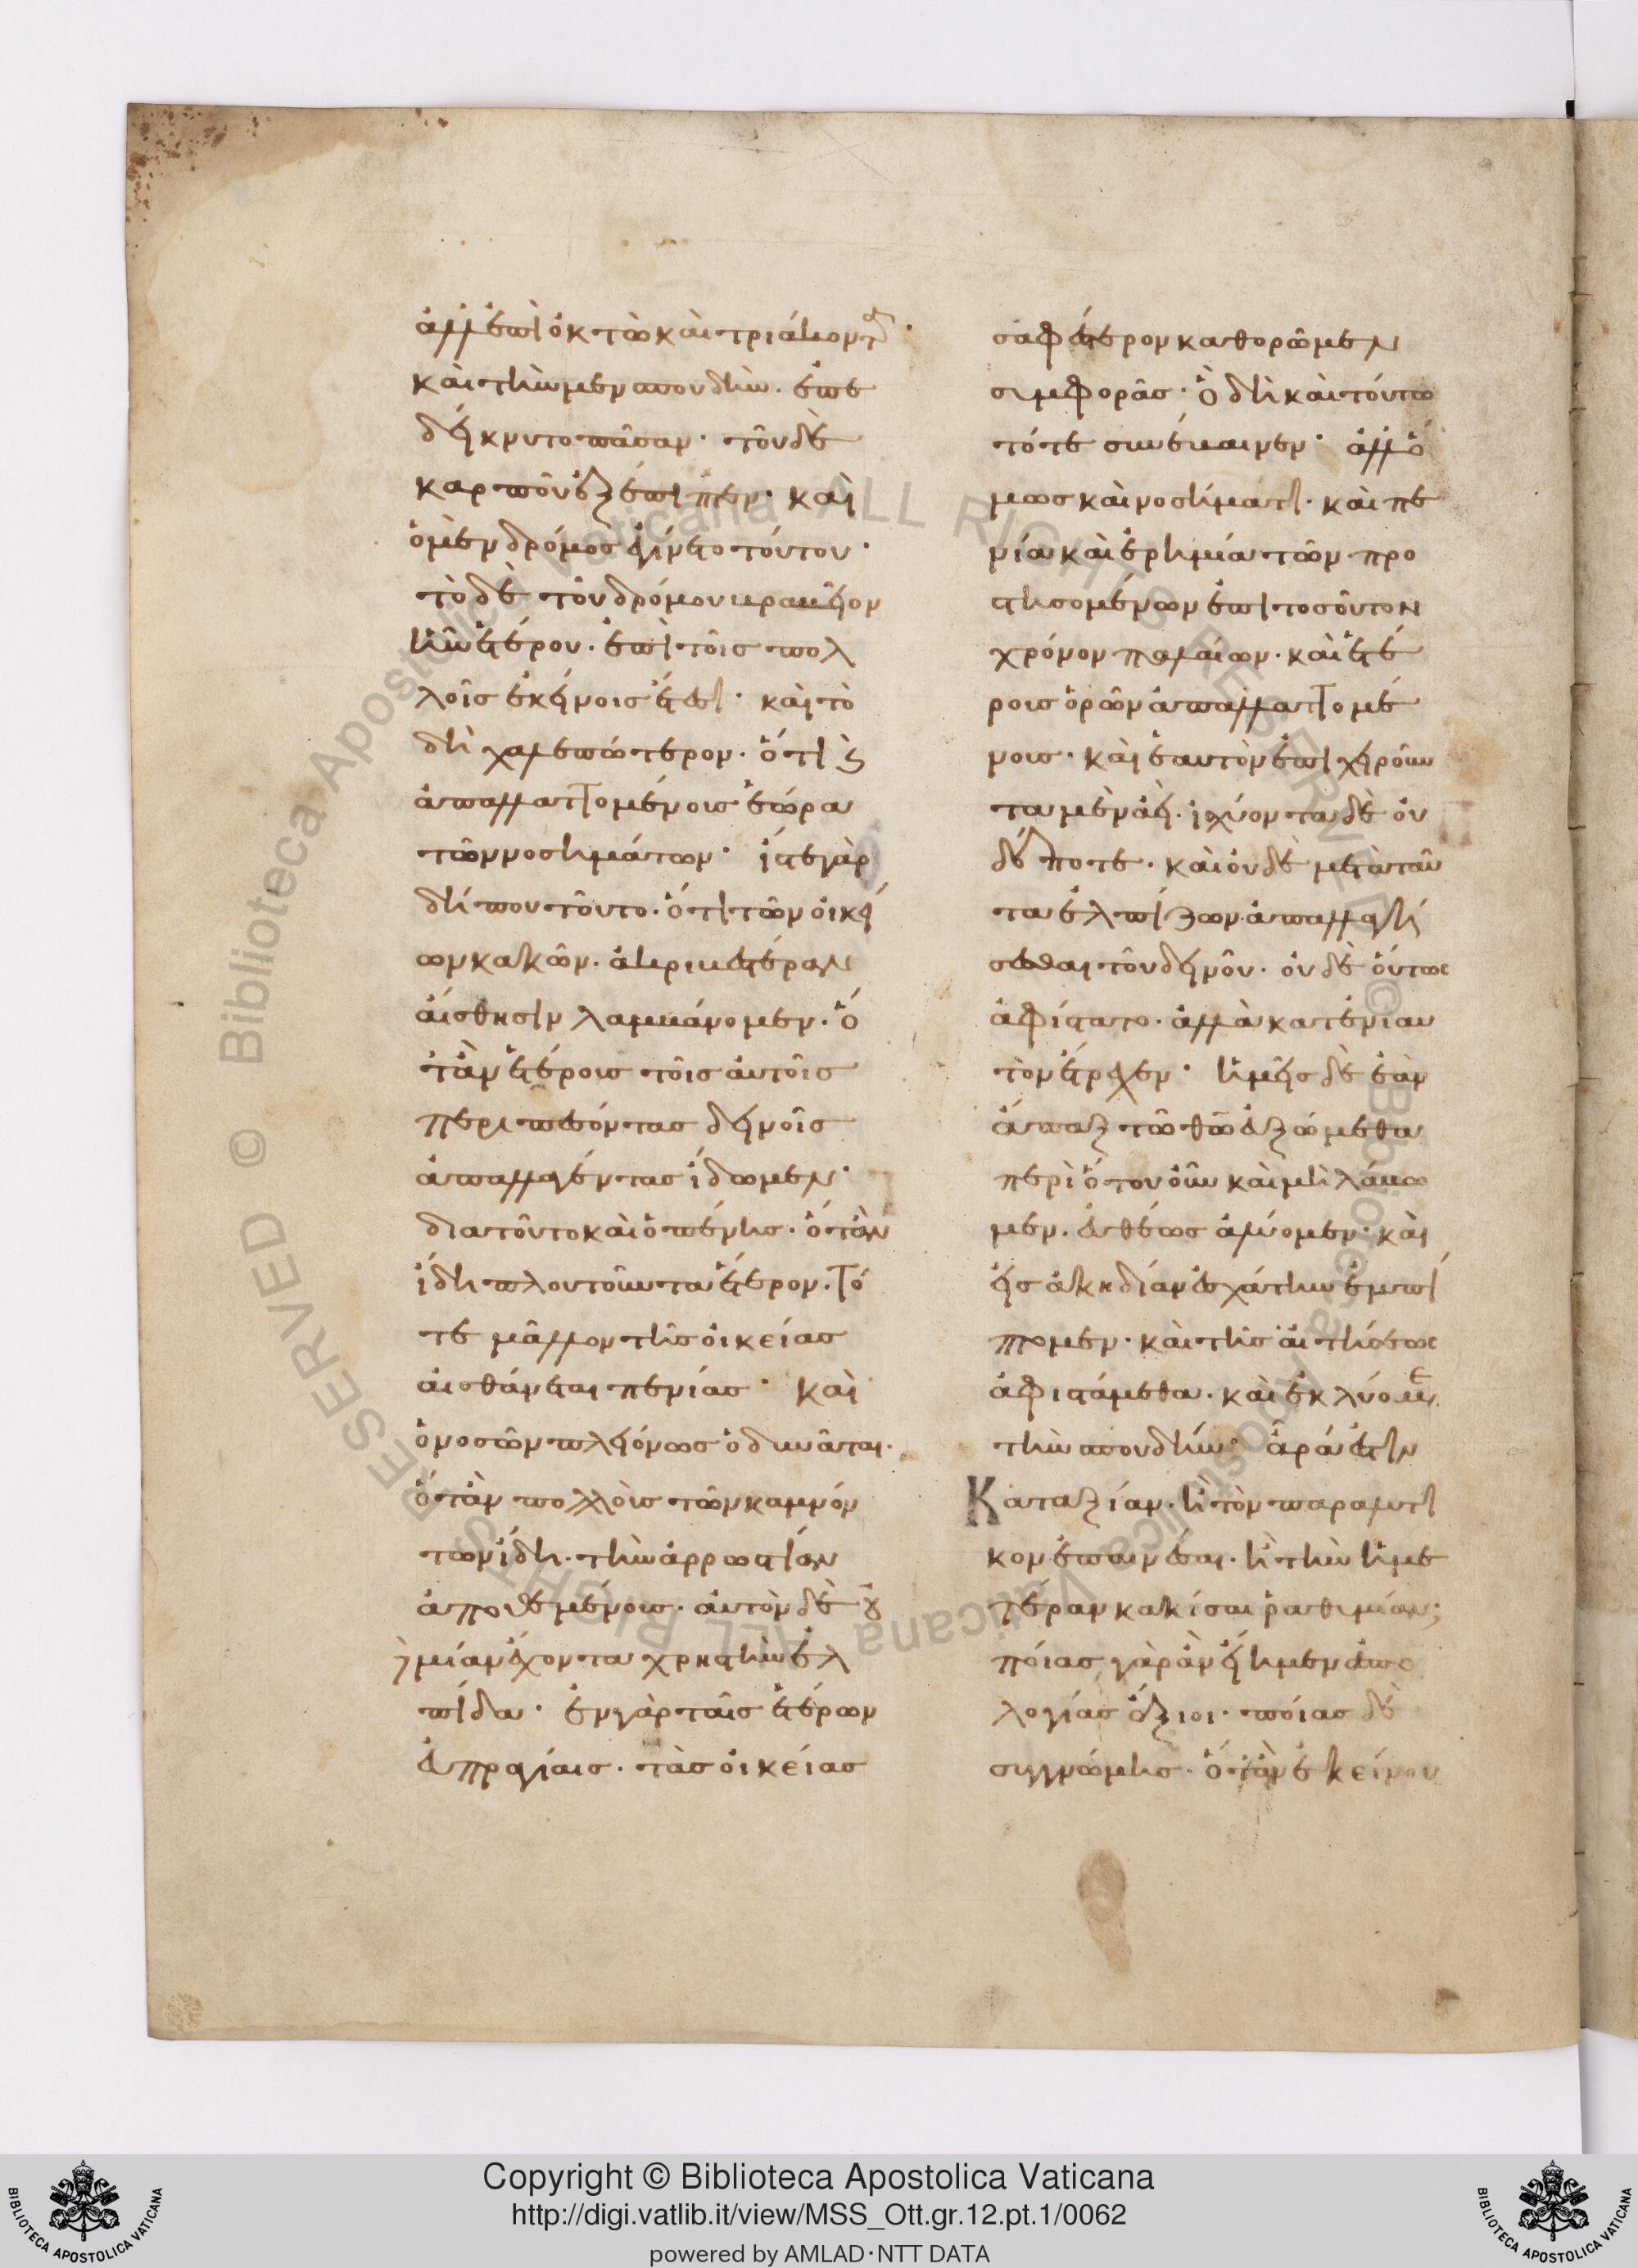 ἀλλ' ἐπὶ ὀκτὼ καὶ τριάκοντ
καὶ τὴν μὲν σπουδὴν. ἐπε
δείκνυτο πᾶσαν· τοῦ δὲ
καρποῦ ἐξέπιπτεν· καὶ
ὁ μὲν δρόμος ἐγίνετο τούτου·
τὸ δὲ τοῦ δρόμου βραβεῖον
ἦν ἑτέρου. ἐπὶ τοῖς πολ
λοῖς ἐκείνοις ἔτεσι· καὶ τὸ
δὴ χαλεπώτερον. ὅτι καὶ
ἀπαλλαττομένοις ἑώρα
τῶν νοσημάτων· ἴστε γὰρ
δήπου τοῦτο. ὅτι τῶν οἰκεί
ων κακῶν. ἀκριβεστέραν
αἴσθησιν λαμβάνομεν. ὅ
τὰν ἑτέρους τοῖς αὐτοῖς
περιπεσόντας δεινοῖς
ἀπαλλαγέντας ἴδωμεν·
διατοῦτο καὶ ὁ πένης. ὅταν
ἴδη πλουτοῦντα ἕτερον. τό
τε μᾶλλον τῆς οἰκείας
αἰσθάνεται πενίας· καὶ
ὁ νοσῶν πλειόνως ὀδυνᾶται.
ὅταν πολλοὺς τῶν καμνόν
των ἴδη. τὴν ἀρρωστίαν
ἀποθεμένους. αὐτὸν δὲ οὐ
δεμίαν ἔχοντα χρηστὴν ἐλ
πίδα· ἐν γὰρ ταῖς ἑτέρων
εὐπραγίαις. τὰς οἰκείας
σαφέστερον καθορῶμεν
συμφοράς· ὃ δὴ καὶ τούτω
τότε συνέβαινεν· ἀλλ' ὅ
μως καὶ νοσήματι. καὶ πε
νία καὶ ἐρημία τῶν προ
στησομένων ἐπὶ τοσοῦτον
χρόνον παλαίων. καὶ ἑτέ
ρους ὁρῶν ἀπαλλαττομέ
νους· καὶ ἑαυτὸν ἐπιχειροῦν
τα μὲν ἀεί. ἰσχύοντα δὲ οὐ
δέποτε. καὶ οὐδὲ μετὰ ταῦ
τα ἐλπίζων ἀπαλλαγή
σεσθαι τοῦ δεινοῦ. οὐδὲ οὕτως
ἀφίστατο. ἀλλὰ κατ' ἐνιαυ
τὸν ἔτρεχεν· ἡμεῖς δὲ ἐὰν
ἅπαξ τῷ θῷ εὐξώμεθα
περὶ ὅτου οὖν καὶ μὴ λάβω
μεν. εὐθέως ἀλύομεν· καὶ
εἰς ἀκηδίαν ἐσχάτην ἐμπί
πτομεν· καὶ τῆς αἰτήσεως
ἀφιστάμεθα. καὶ ἐκλύομε
τὴν σπουδήν· ἆρά ἐστιν
Κατ' αξίαν. ἢ τὸν παραλυτι
κὸν ἐπαινέσαι. ἢ τὴν ἡμε
τέραν κακίσαι ῥαθυμίαν;
ποίας γὰρ ἂν εἴημεν ἀπο
λογίας ἄξιοι. ποίας δὲ
συγγνώμης. ὅταν ἐκείνου
Copyright © Biblioteca Apostolica Vaticana
http://digi.vatlib.it/view/MSS_Ott.gr.12.pt.1/0062
powered by AMLAD·NTT DATA